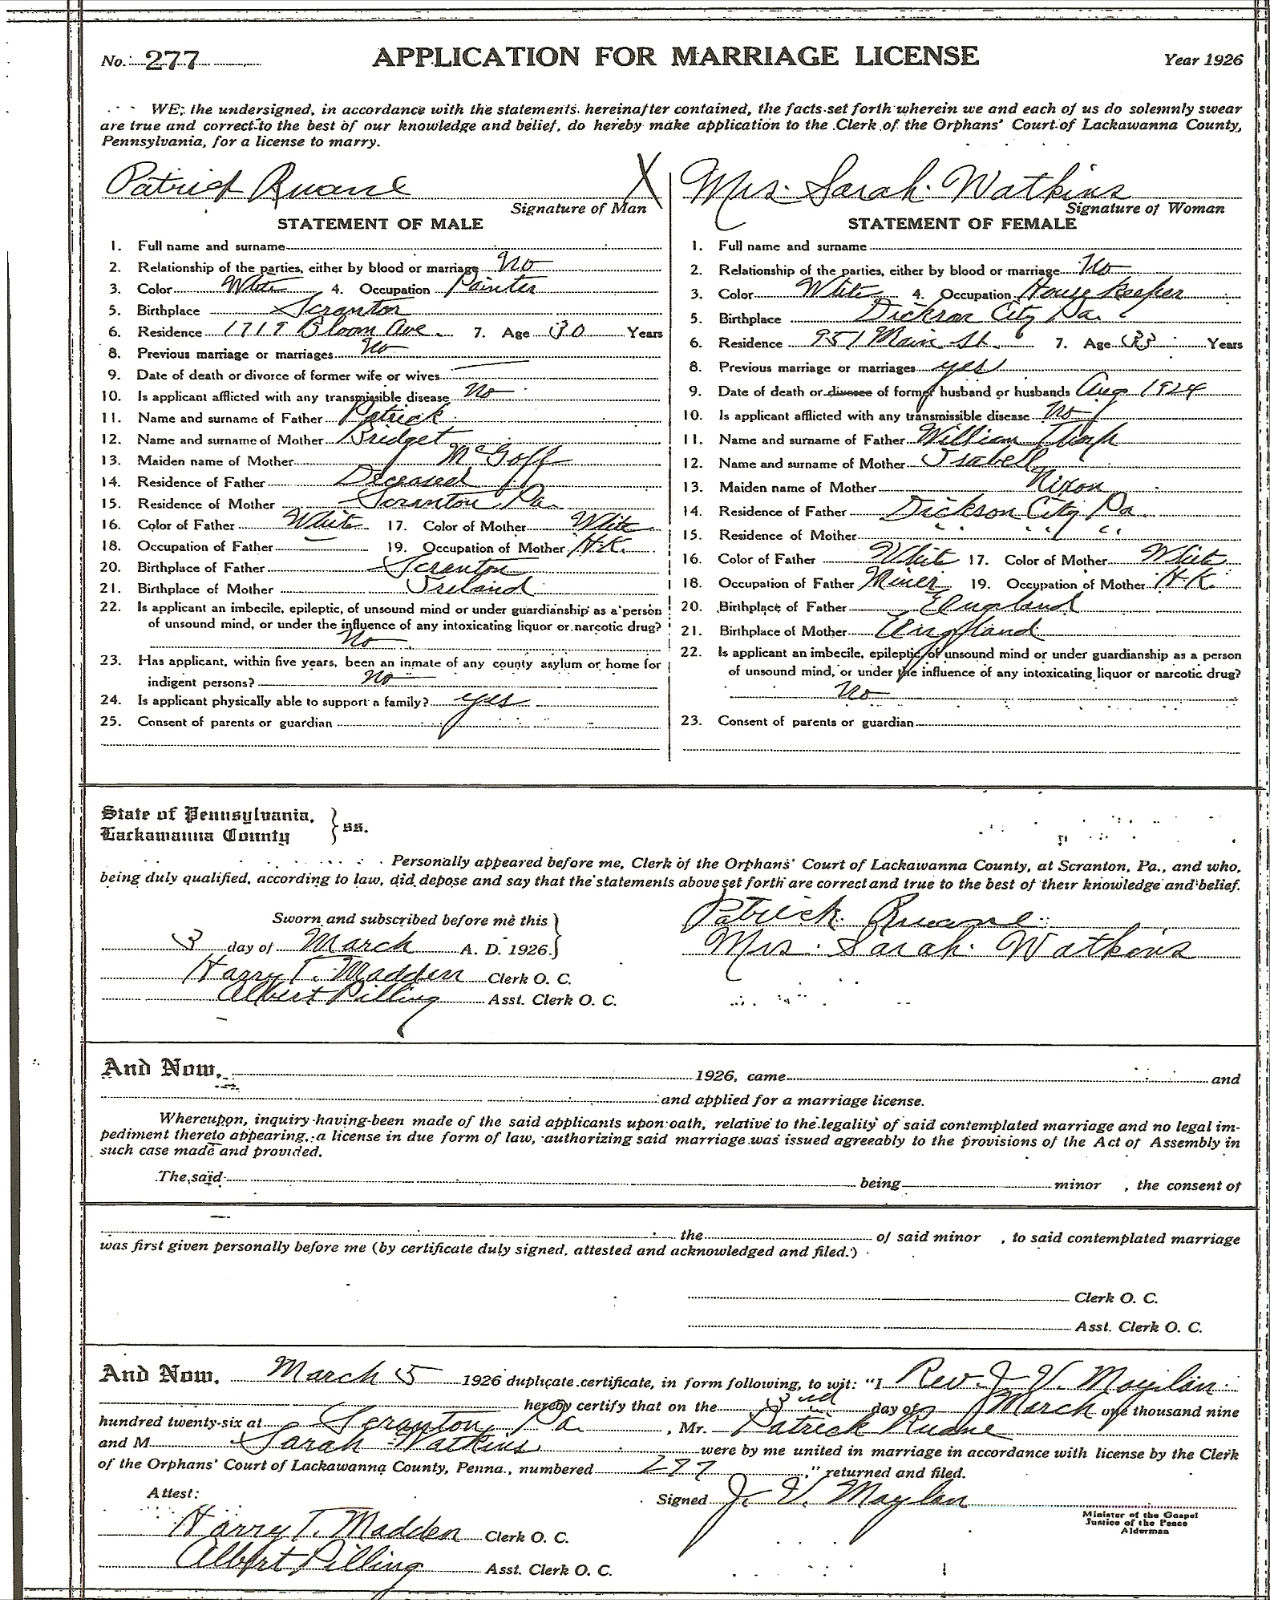 No. 277 APPLICATION FOR MARRIAGE LICENSE Year 1926
WE, the undersigned, in accordance with the statements hereinafter contained, the facts set forth wherein we and each of us do solemnly swear
are true and correct to the best of our knowledge and belief, do hereby make application to the Clerk of the Orphans' Court of Lackawanna County,
Pennsylvania, for a license to marry.
Patrick Ruane X
Signature of Man
STATEMENT OF MALE
1. Full name and surname
2. Relationship of the parties, either by blood or marriage No
3. Color White 4. Occupation Painter
5. Birthplace Scranton
6. Residence 1717 Bloom Ave. 7. Age 30 Years
8. Previous marriage or marriages No
9. Date of death or divorce of former wife or wives —
10. Is applicant afflicted with any transmissible disease No
11. Name and surname of Father Patrick
12. Name and surname of Mother Bridget
13. Maiden name of Mother McGoff
14. Residence of Father Deceased
15. Residence of Mother Scranton Pa.
16. Color of Father White 17. Color of Mother White
18. Occupation of Father — 19. Occupation of Mother H.K.
20. Birthplace of Father Scranton
21. Birthplace of Mother Ireland
22. Is applicant an imbecile, epileptic, of unsound mind or under guardianship as a person
of unsound mind, or under the influence of any intoxicating liquor or narcotic drug?
No
23. Has applicant, within five years, been an inmate of any county asylum or home for
indigent persons? No
24. Is applicant physically able to support a family? yes
25. Consent of parents or guardian
Mrs. Sarah. Watkins
Signature of Woman
STATEMENT OF FEMALE
1. Full name and surname
2. Relationship of the parties, either by blood or marriage No
3. Color White 4. Occupation House Keeper
5. Birthplace Dickson City Pa.
6. Residence 951 Main St. 7. Age 33 Years
8. Previous marriage or marriages yes
9. Date of death or divorce of former husband or husbands Aug 1924
10. Is applicant afflicted with any transmissible disease No
11. Name and surname of Father William
12. Name and surname of Mother Isabell
13. Maiden name of Mother Nixon
14. Residence of Father Dickson City Pa
15. Residence of Mother " " "
16. Color of Father White 17. Color of Mother White
18. Occupation of Father Miner 19. Occupation of Mother H.K.
20. Birthplace of Father England
21. Birthplace of Mother England
22. Is applicant an imbecile, epileptic, of unsound mind or under guardianship as a person
of unsound mind, or under the influence of any intoxicating liquor or narcotic drug?
No
23. Consent of parents or guardian
State of Pennsylvania,
Lackawanna County } ss.
Personally appeared before me, Clerk of the Orphans' Court of Lackawanna County, at Scranton, Pa., and who,
being duly qualified, according to law, did depose and say that the statements above set forth are correct and true to the best of their knowledge and belief.
Sworn and subscribed before me this
3 day of March A. D. 1926.
Harry T. Madden Clerk O. C.
Albert Pilling Asst. Clerk O. C.
Patrick Ruane
Mrs. Sarah. Watkins
And Now, 1926, came and
and applied for a marriage license.
Whereupon, inquiry having been made of the said applicants upon oath, relative to the legality of said contemplated marriage and no legal im-
pediment thereto appearing, a license in due form of law, authorizing said marriage was issued agreeably to the provisions of the Act of Assembly in
such case made and provided.
The said being minor , the consent of
the of said minor , to said contemplated marriage
was first given personally before me (by certificate duly signed, attested and acknowledged and filed.)
Clerk O. C.
Asst. Clerk O. C.
And Now, March 5 1926 duplicate certificate, in form following, to wit: "I Rev. J. V. Moylan
hereby certify that on the 3rd day of March one thousand nine
hundred twenty-six at Scranton, Pa. , Mr. Patrick Ruane
and M Sarah Watkins were by me united in marriage in accordance with license by the Clerk
of the Orphans' Court of Lackawanna County, Penna., numbered 277 ," returned and filed.
Attest:
Signed J. V. Moylan
Minister of the Gospel
Justice of the Peace
Alderman
Harry T. Madden Clerk O. C.
Albert Pilling Asst. Clerk O. C.